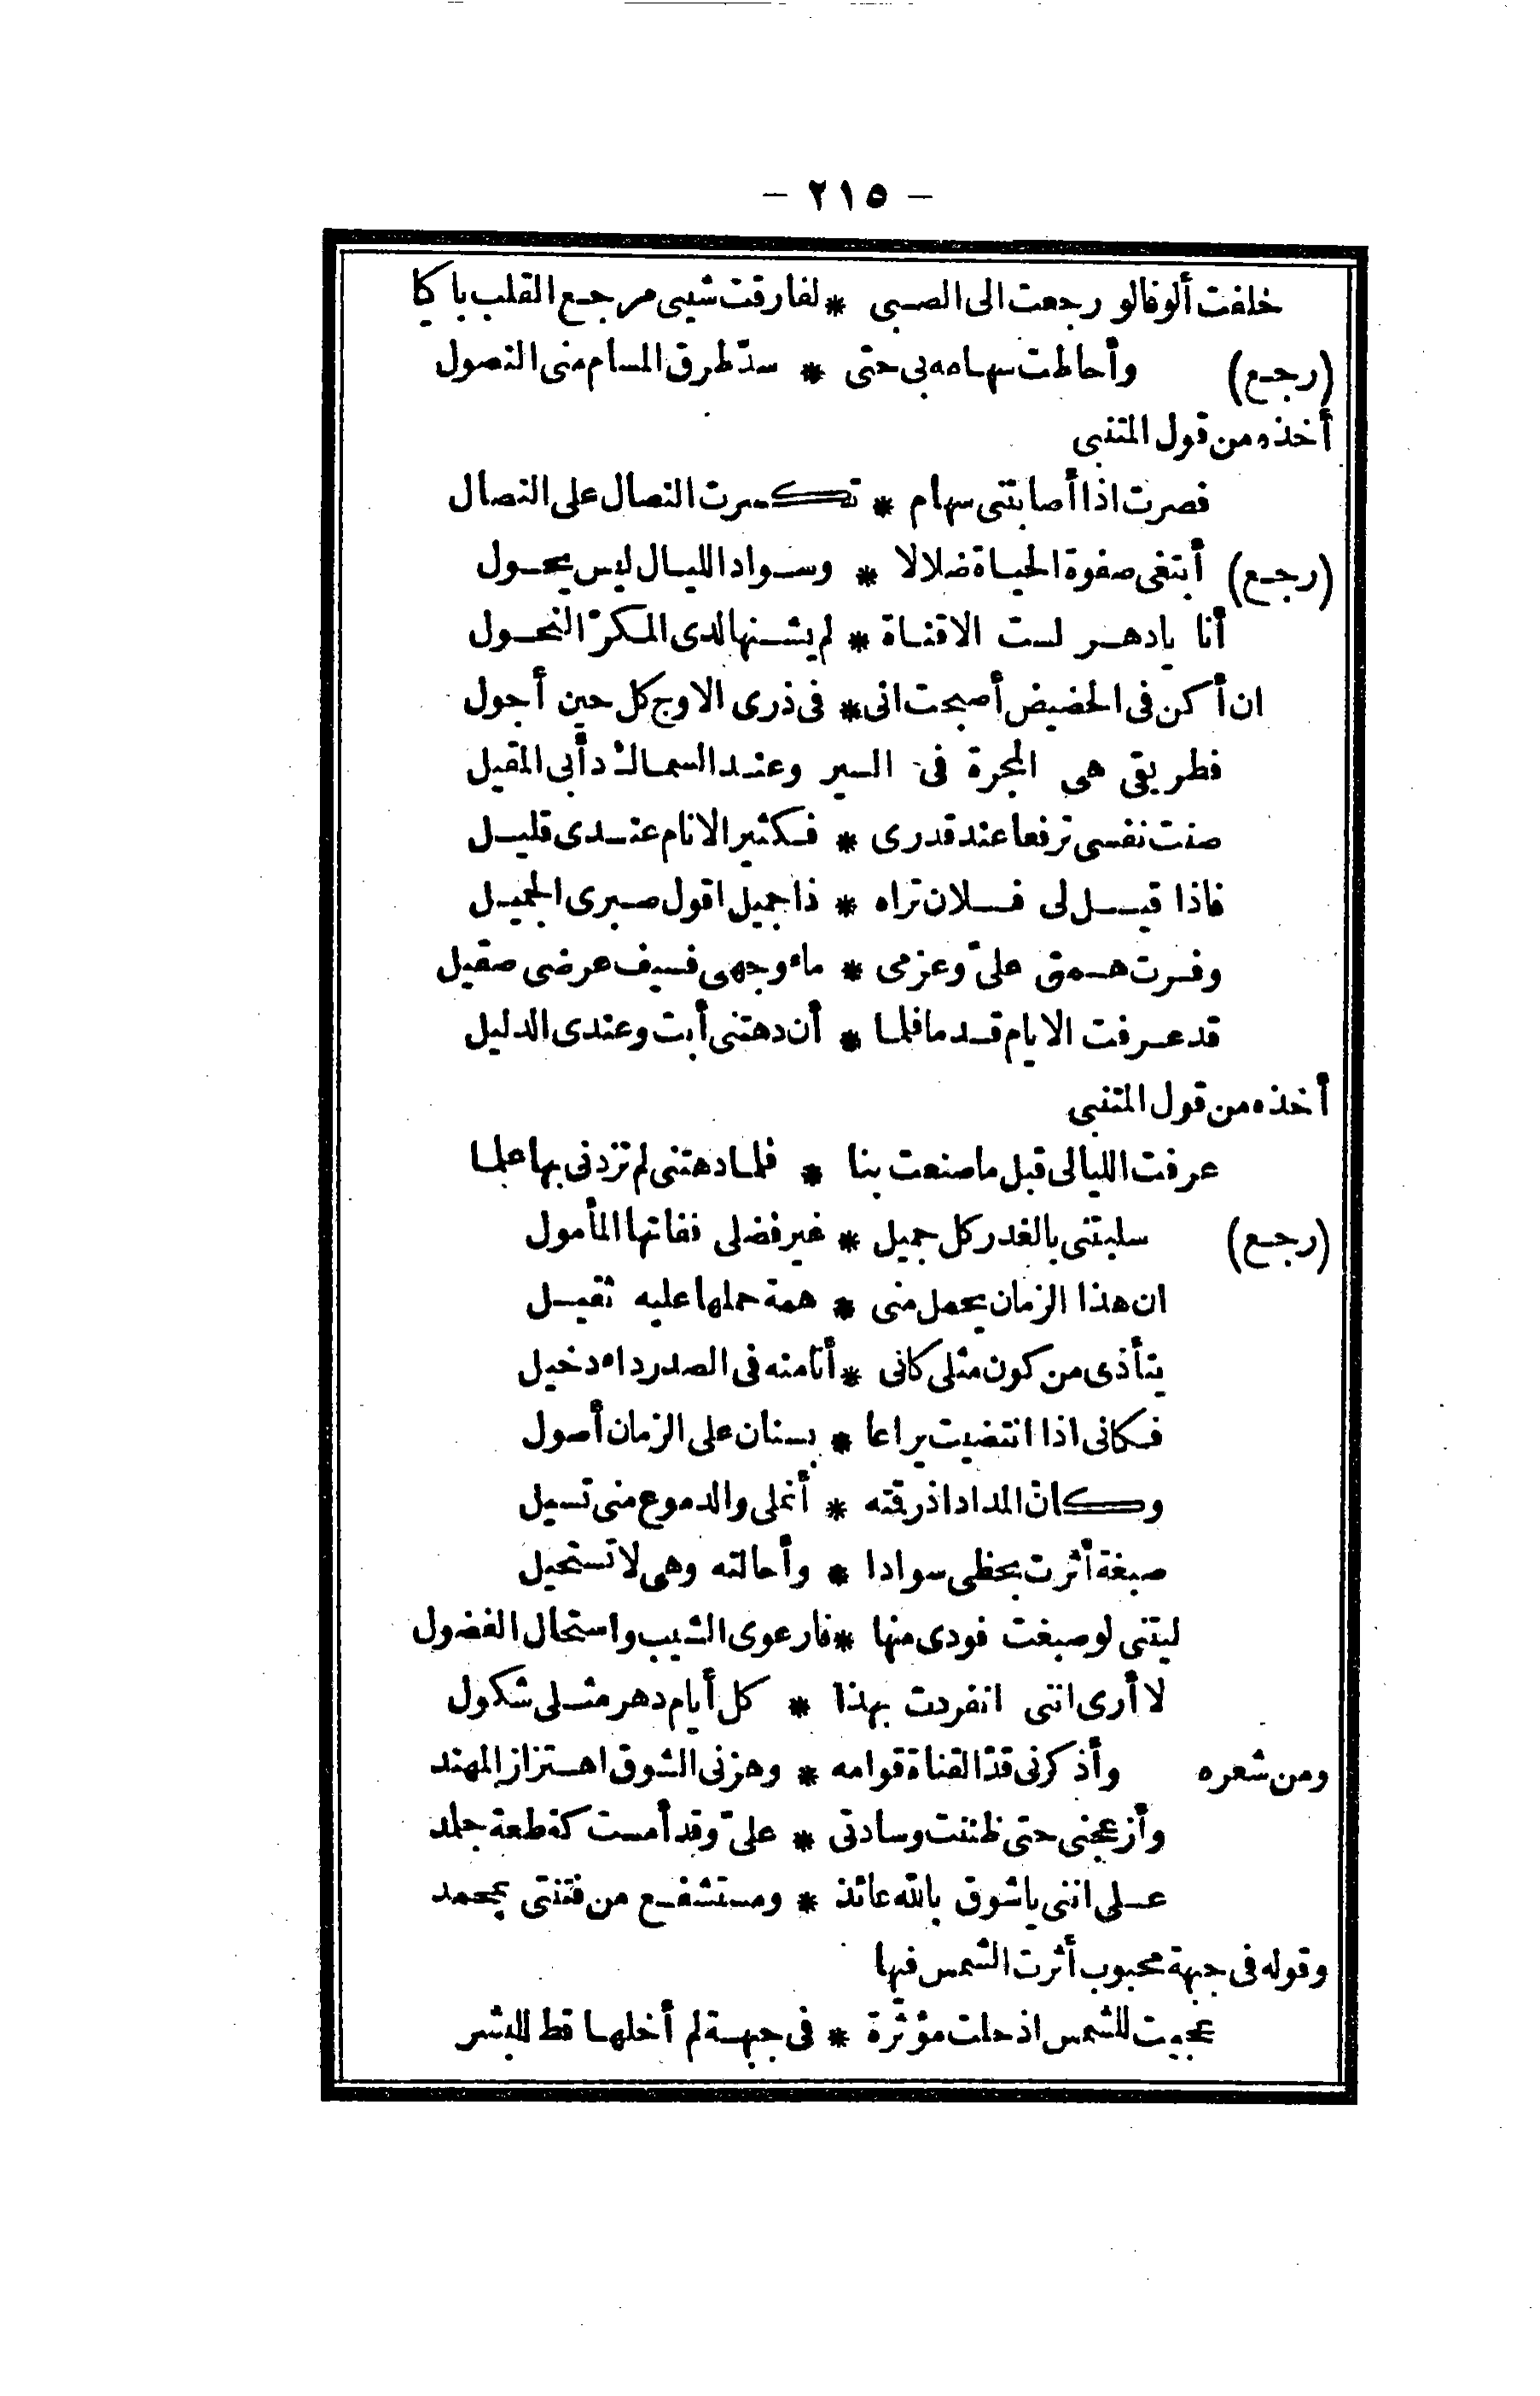 - ٢١٥ -
خلفت ألوفا لو رجعت الى الصبى * لفارقت شيبى مرجع القلب باكيا
(رجع) وأحاطت سهامه بى حتى * سدّ طرق المسام منى النصول
أخذه من قول المتنبى
فصرت اذا أصابتنى سهام * تكسرت النصال على النصال
(رجع) أبتغى صفوة الحياة ضلالا * وسواد الليال ليس يحول
أنا يادهر لست الا قناة * لم يشنها لدى المكرّ النحول
ان أكن فى الحضيض أصبحت انى * فى ذرى الاوج كل حين أجول
فطريقى هى المجرة فى السير وعند السماك دأبى المقيل
صنت نفسى ترفعا عند قدرى * فكثير الانام عندى قليل
فاذا قيل لى فلان تراه * ذا جميل اقول صبرى الجميل
وفرت همتى علىّ وعزمى * ماء وجهى فسيف عرضى صقيل
قد عرفت الايام قدما فلما * أن دهتنى أبت وعندى الدليل
أخذه من قول المتنبى
عرفت الليالى قبل ما صنعت بنا * فلما دهتنى لم تزدنى بها علما
(رجع) سلبتنى بالغدر كل جميل * غير فضلى ففاتها المأمول
ان هذا الزمان يحمل منى * همة حملها عليه ثقيل
يتأذى من كون مثلى كانى * أنا منه فى الصدر داء دخيل
فكانى اذا انتضيت يراعا * بسنان على الزمان أصول
وكانّ المداد اذ رقته * أنملى والدموع منى تسيل
صبغة أثرت بحظى سوادا * وأحالته وهى لا تستحيل
ليتنى لو صبغت فودى منها * فارعوى الشيب واستحال الفضول
لا أرى اننى انفردت بهذا * كل أيام دهر مثلى شكول
ومن شعره وأذكرنى قدّ القناة قوامه * وهزنى الشوق اهتزاز المهند
وأزعجنى حتى ظننت وسادتى * علىّ وقد أمست كقطعة جلد
على اننى ياشوق بالله عائذ * ومستشفع من فتنتى بمحمد
وقوله فى جبهة محبوب أثرت الشمس فيها
عجبت للشمس اذ حلت مؤثرة * فى جبهة لم أخلها قط للبشر